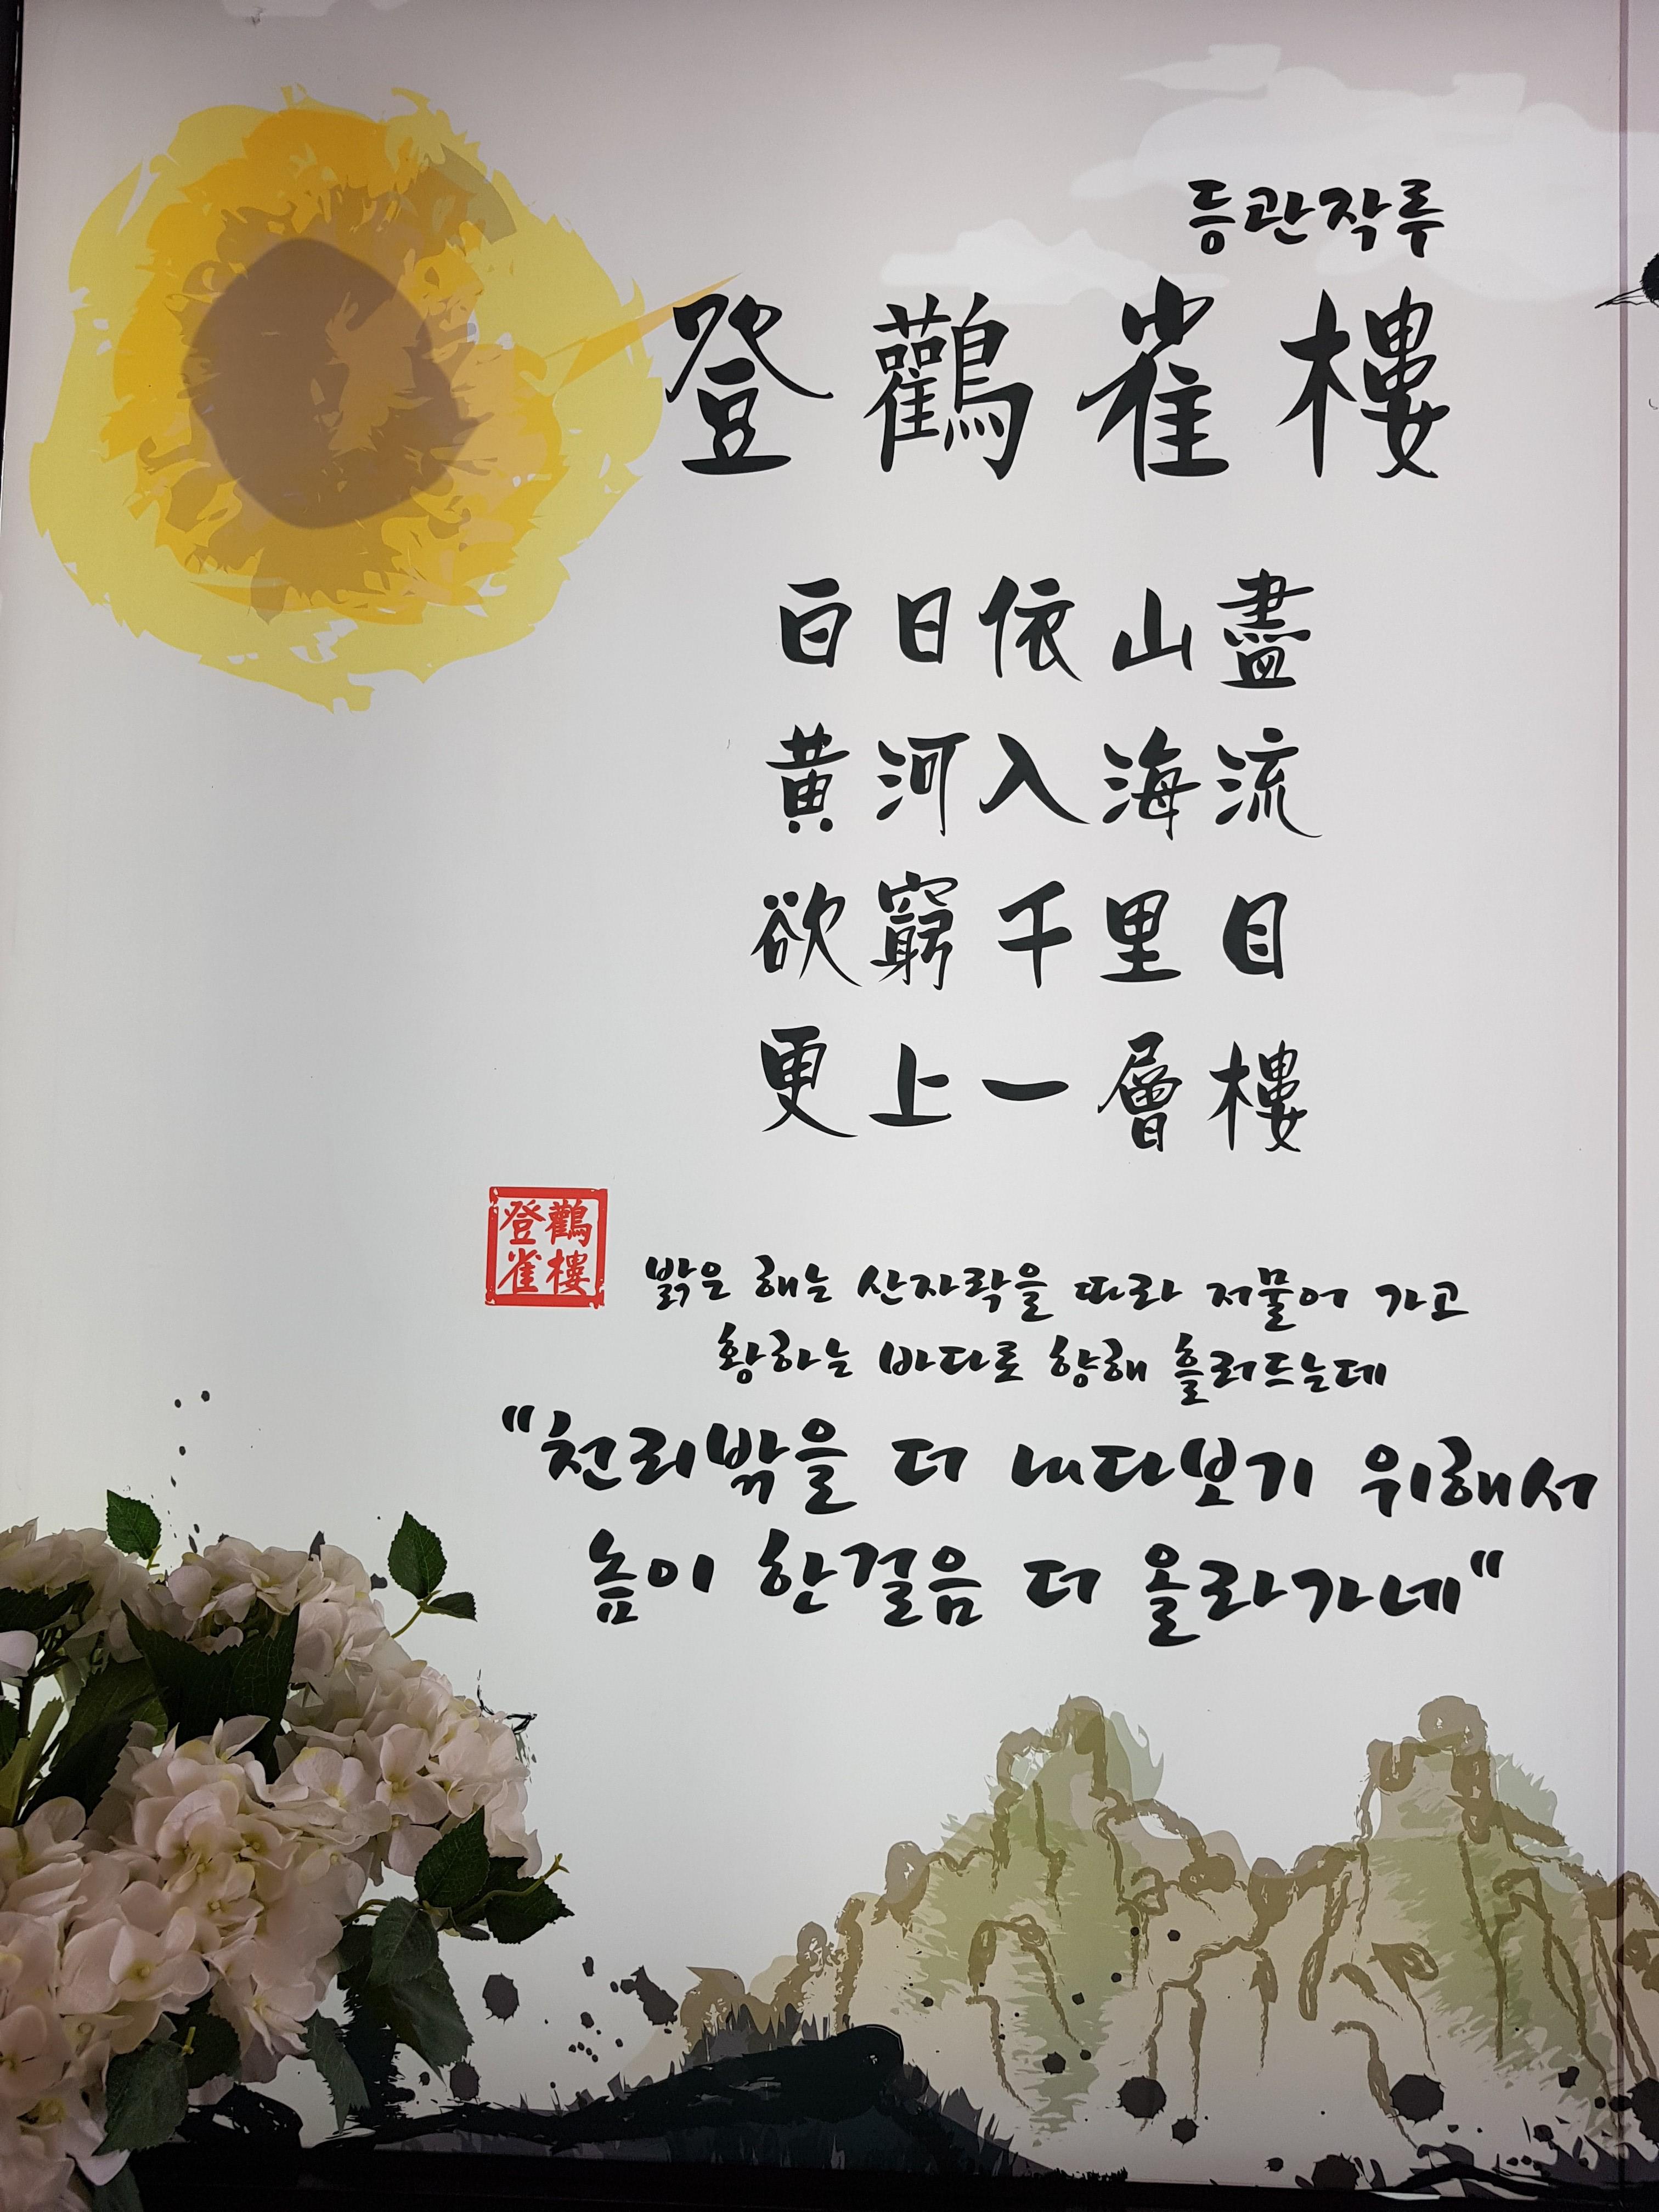 등관작루
登鸛雀樓
白日依山盡
黃河入海流
欲窮千里目
更上一層樓
登鸛
雀樓
밝은 해는 산자락을 따라 저물어 가고
황하는 바다로 향해 흘러드는데
"천리밖을 더 내다보기 위해서
높이 한걸음 더 올라가네"